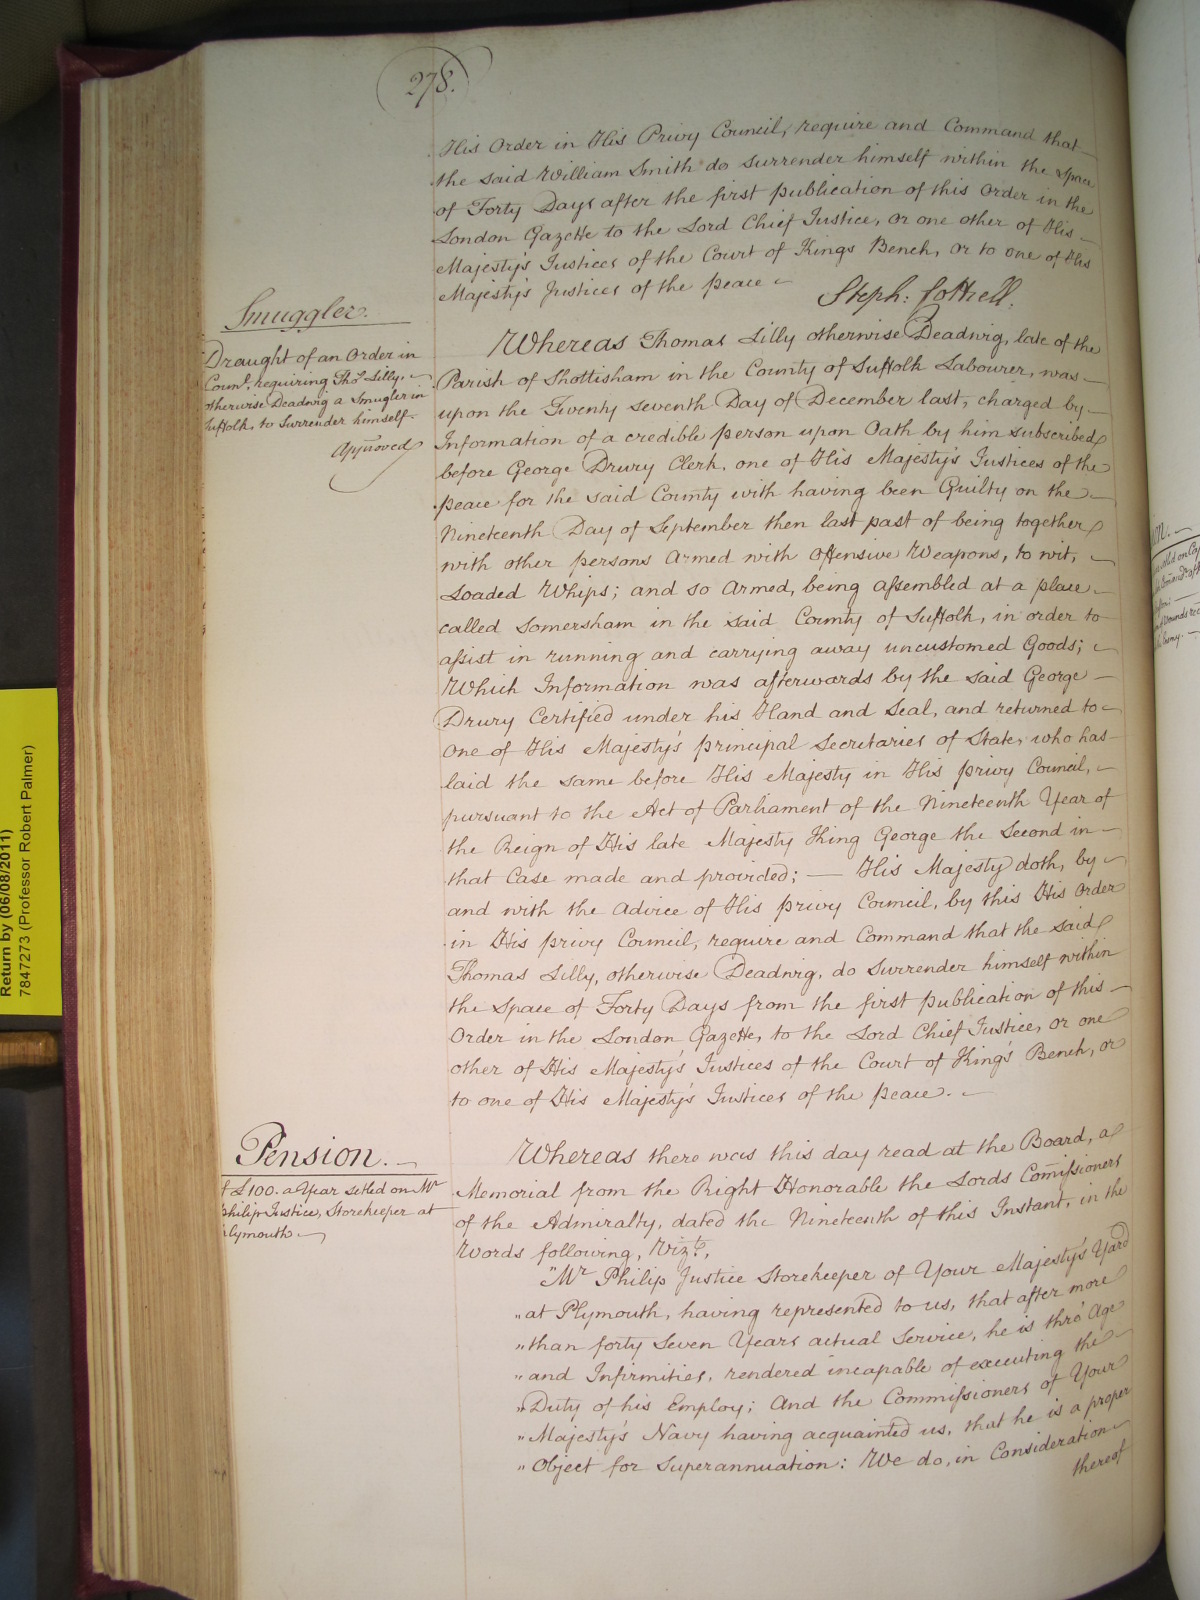 278.
His Order in His Privy Council, require and Command that
the said William Smith do surrender himself within the space
of Forty Days after the first publication of this Order in the
London Gazette to the Lord Chief Justice, or one other of His
Majesty's Justices of the Court of Kings Bench, or to one of His
Majesty's Justices of the peace
Steph: Cottrell.
Smuggler.
Draught of an Order in
Counl. requiring Thos. Lilly,
otherwise Deadwig a Smugler in
Suffolk, to Surrender himself.
Approved
Whereas Thomas Lilly otherwise Deadwig, late of the
Parish of Shottisham in the County of Suffolk Labourer, was
upon the Twenty seventh Day of December last, charged by
Information of a credible person upon Oath by him subscribed
before George Drury Clerk, one of His Majesty's Justices of the
peace for the said County with having been Guilty on the
Nineteenth Day of September then last past of being together
with other persons armed with offensive Weapons, to wit,
Loaded Whips; and so armed, being assembled at a place
called Somersham in the said County of Suffolk, in order to
assist in running and carrying away uncustomed Goods;
Which Information was afterwards by the said George
Drury Certified under his Hand and Seal, and returned to
one of His Majesty's principal Secretaries of State, who has
laid the same before His Majesty in His privy Council,
pursuant to the Act of Parliament of the Nineteenth Year of
the Reign of His late Majesty King George the Second in
that Case made and provided; — His Majesty doth, by
and with the advice of His privy Council, by this His Order
in His privy Council, require and Command that the said
Thomas Lilly, otherwise Deadwig, do surrender himself within
the Space of Forty Days from the first publication of this
Order in the London Gazette, to the Lord Chief Justice, or one
other of His Majesty's Justices of the Court of King's Bench, or
to one of His Majesty's Justices of the peace.
Pension.
£100. a Year setled on Mr
Philip Justice, Storekeeper at
Plymouth
Whereas there was this day read at the Board, a
Memorial from the Right Honorable the Lords Comissioners
of the Admiralty, dated the Nineteenth of this Instant, in the
Words following, Vizt.,
"Mr Philip Justice Storekeeper of Your Majesty's Yard
"at Plymouth, having represented to us, that after more
"than forty Seven Years actual Service, he is thro' Age
"and Infirmities, rendered incapable of executing the
"Duty of his Employ; And the Commissioners of Your
"Majesty's Navy having acquainted us, that he is a proper
"Object for Superannuation: We do, in Consideration
thereof
Return by (06/08/2011)
7847273 (Professor Robert Palmer)